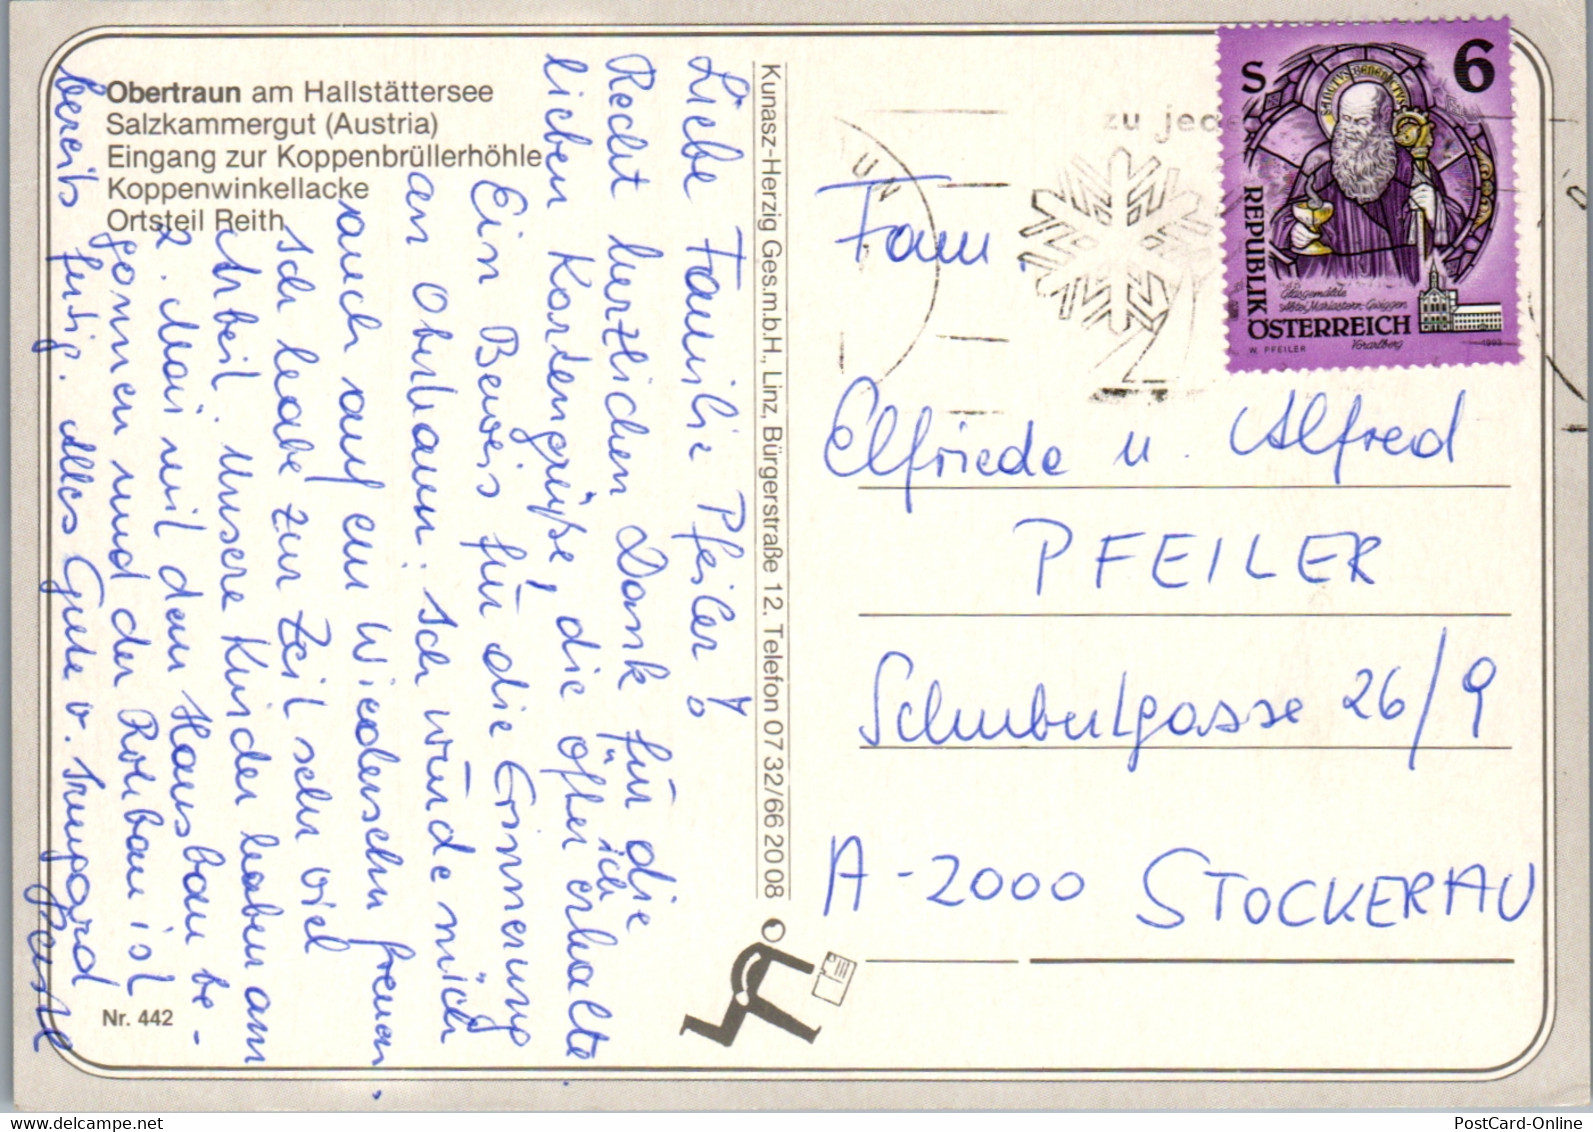 Obertraun am Hallstättersee
Salzkammergut (Austria)
Eingang zur Koppenbrüllerhöhle
Koppenwinkellacke
Ortsteil Reith
Liebe Familie Pfeiler!
Recht herzlichen Dank für die
lieben Kartengrüße, die ich öfter erhalte.
Ein Beweis für die Erinnerung
an Obertraun. Ich würde mich
auch auf ein Wiedersehn freuen.
Ich habe zur Zeit sehr viel
Arbeit. Unsere Kinder haben am
2. Mai mit dem Hausbau be-
gonnen und der Rohbau ist
bereits fertig. Alles Gute v. Irmgard
Nr. 442
Kunasz-Herzig Ges.m.b.H., Linz, Bürgerstraße 12, Telefon 07 32/66 20 08
zu jed
UN
S 6
SANCTVS Benedictvs
REPUBLIK
ÖSTERREICH
Glasgemälde
Abtei Mariastern-Gwiggen
Vorarlberg
W. PFEILER
1993
Fam.
Elfriede u. Alfred
PFEILER
Schubertgasse 26/9
A-2000 STOCKERAU
PostCard-Online